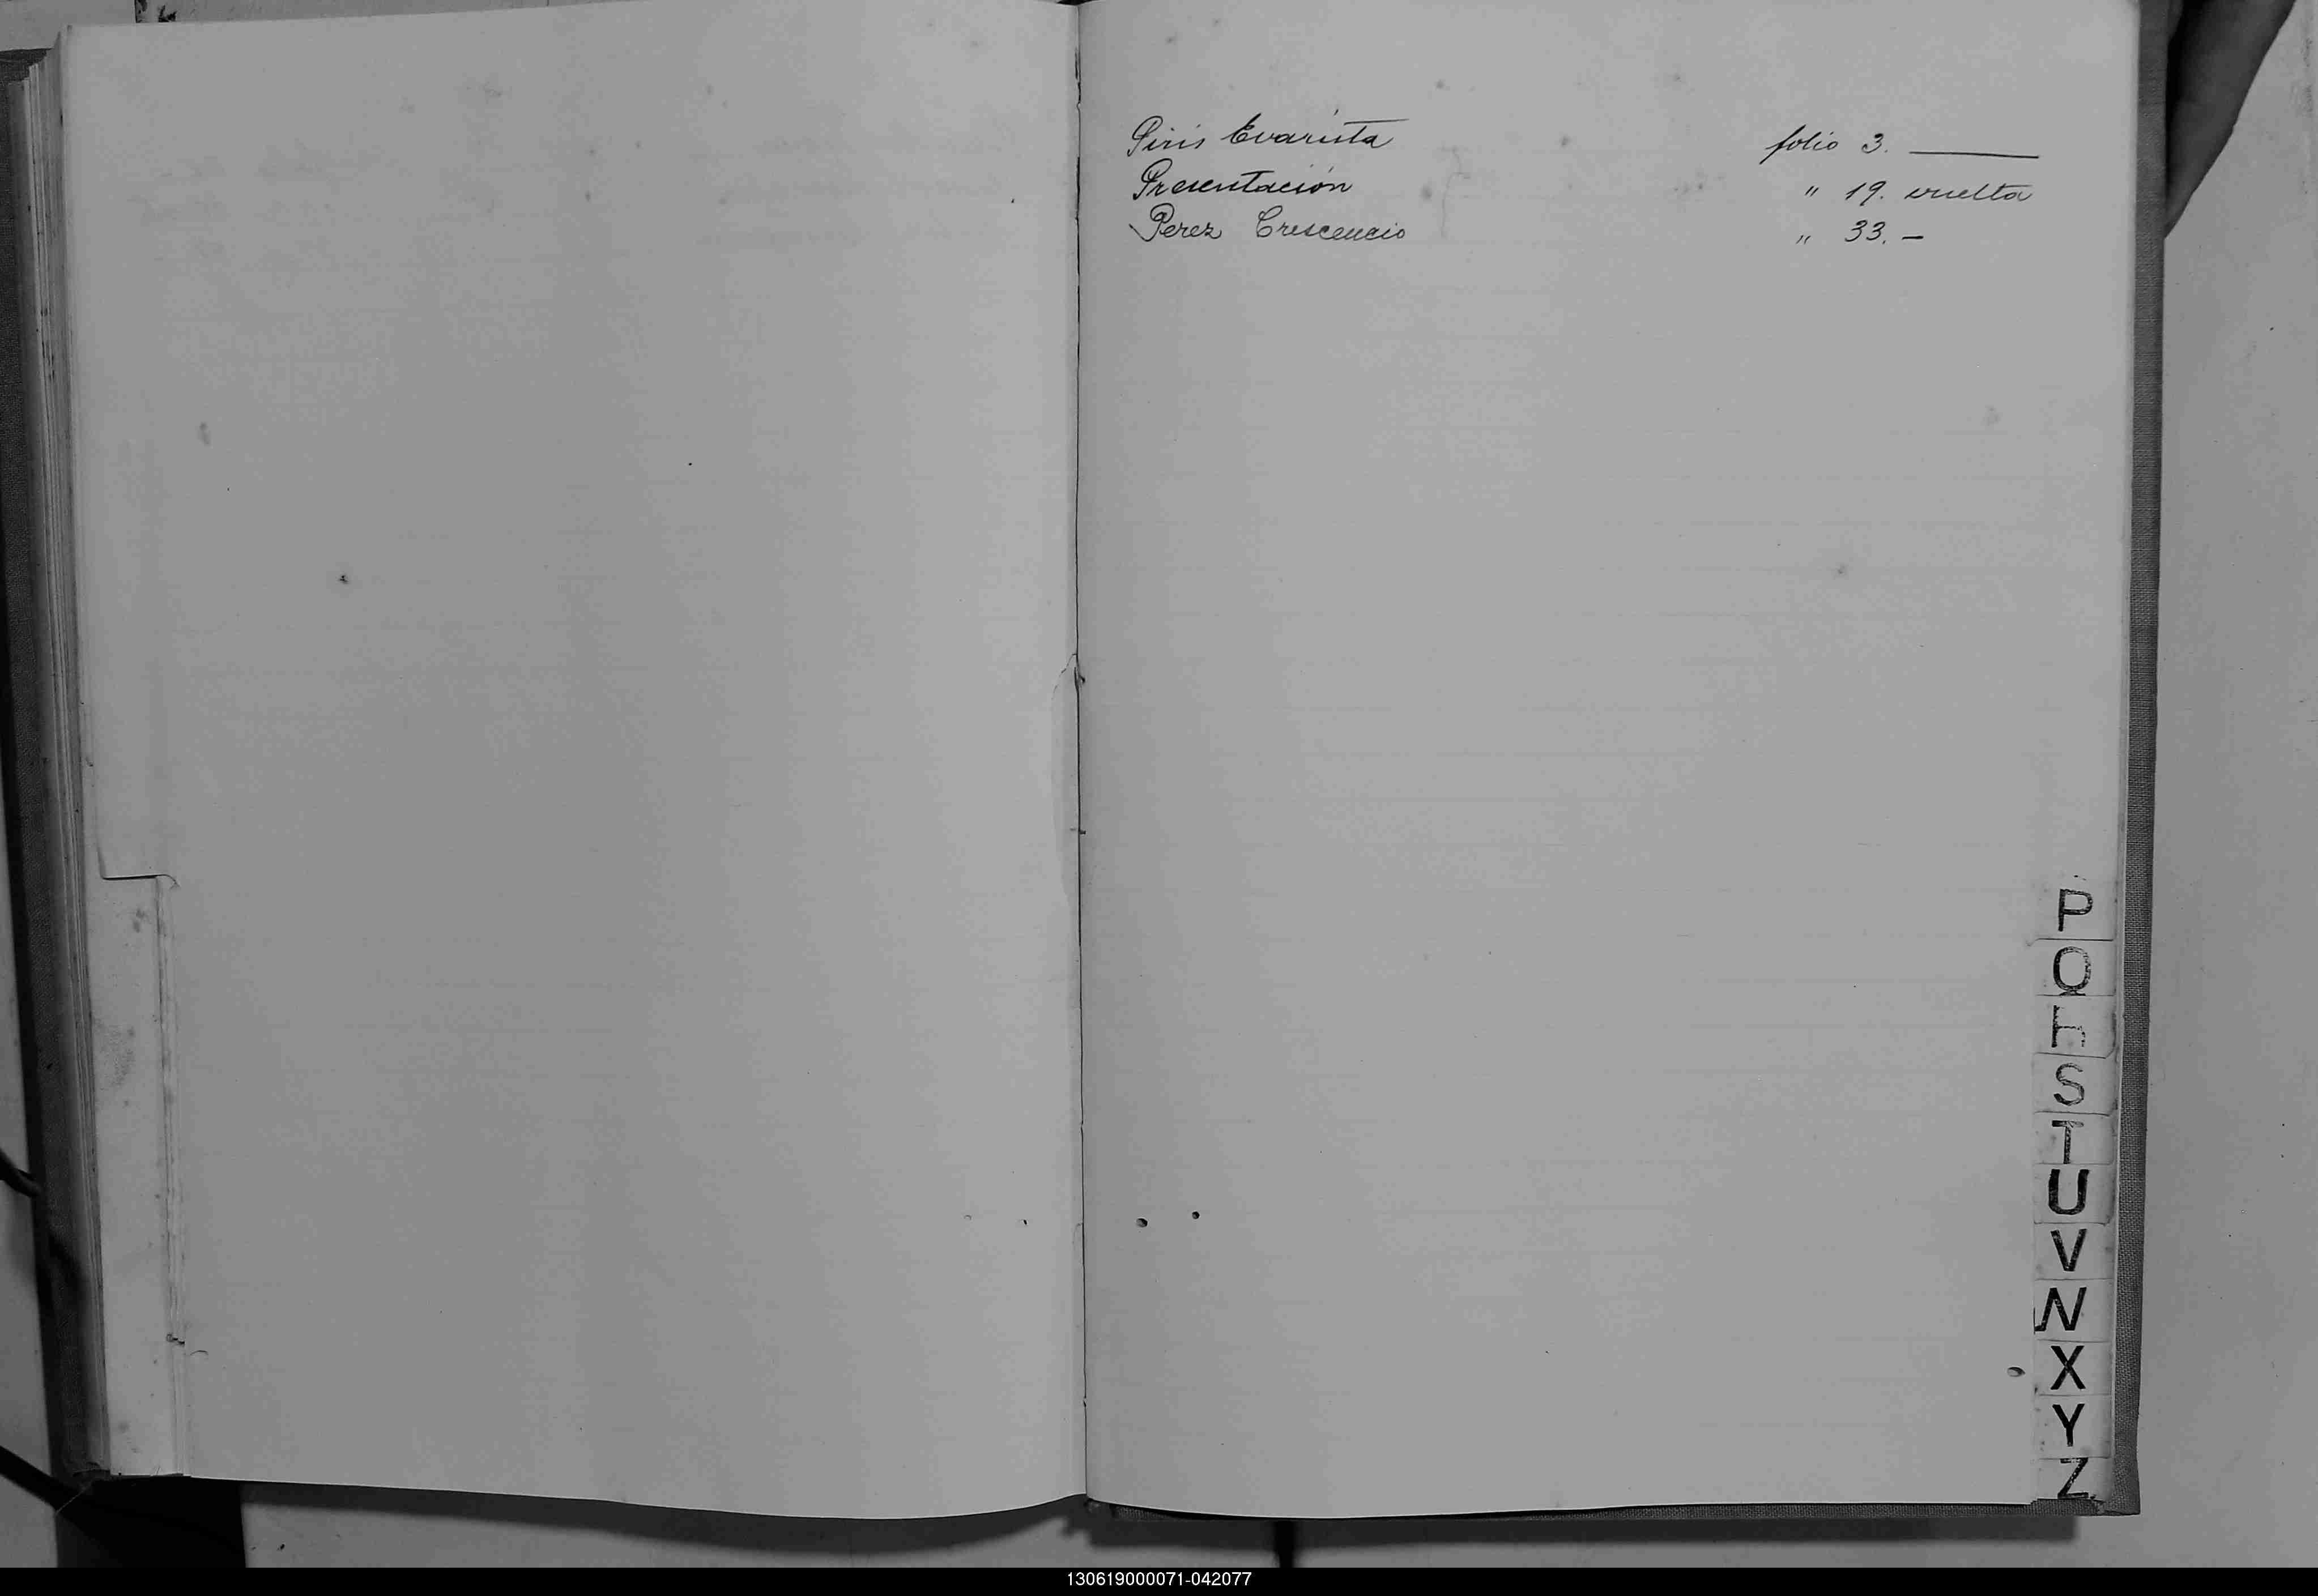 Piris Evarista folio 3. ———
Presentación " 19. vuelta
Perez Crescencio " 33. –
P
Q
R
S
T
U
V
W
X
Y
Z
130619000071-042077